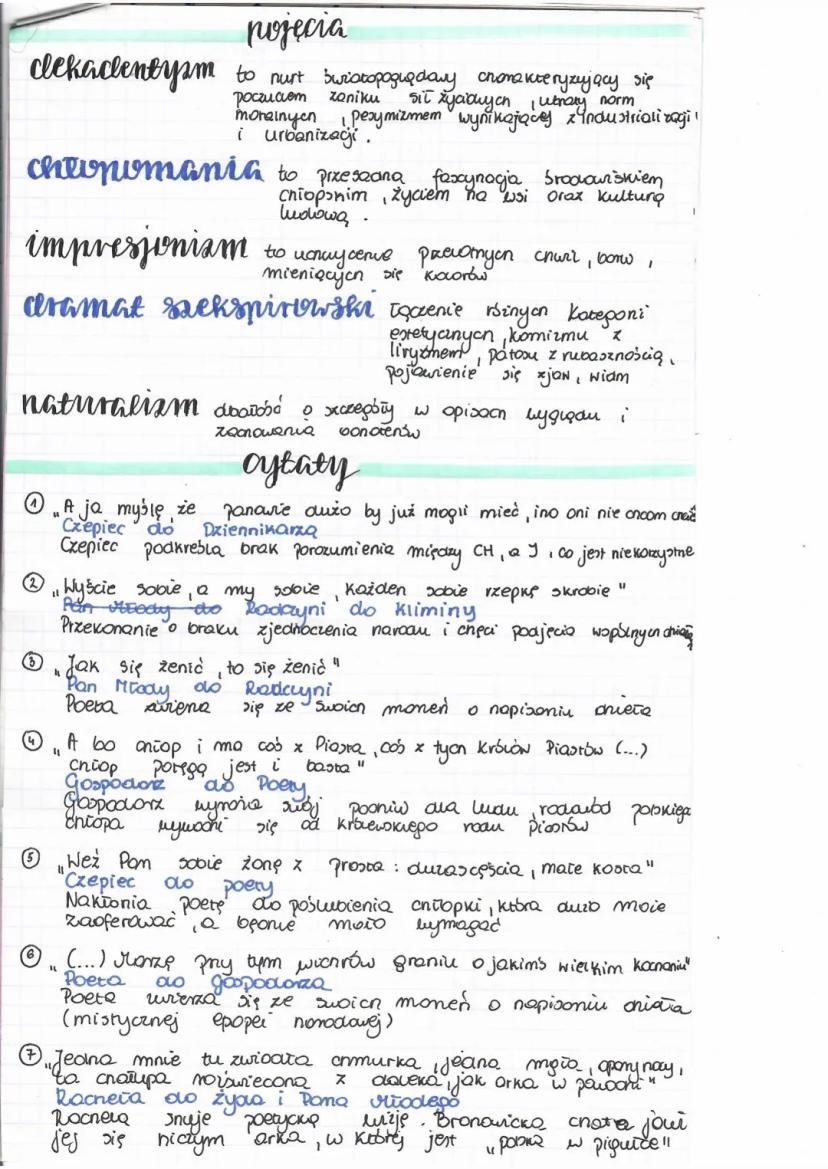 pojęcia
dekadentyzm to nurt światopoglądowy charakteryzujący się
poczuciem zaniku sił życiowych, utraty norm
moralnych, pesymizmem wynikającej z industrializacji
i urbanizacji.
chłopomania to przesadna fascynacja środowiskiem
chłopskim, życiem na wsi oraz kulturą
ludową.
impresjonizm to uchwycenie przelotnych chwil, barw,
mieniących się kolorów
dramat szekspirowski łączenie różnych kategorii
estetycznych, komizmu z
liryzmem, patosu z rubasznością,
pojawienie się zjaw, widm
naturalizm dbałość o szczegóły w opisach wyglądu i
zachowania bohaterów
cytaty
① „A ja myślę, że panowie dużo by już mogli mieć, ino oni nie chcom chcieć
Czepiec do Dziennikarza
Czepiec podkreśla brak porozumienia między CH, a I, co jest niekorzystne
② „Wyście sobie, a my sobie, każden sobie rzepkę skrobie"
Pan Młody do Radczyni do Kliminy
Przekonanie o braku zjednoczenia narodu i chęci podjęcia wspólnych działań
③ „Jak się żenić, to się żenić"
Pan Młody do Radczyni
Poeta zwierza się ze swoich marzeń o napisaniu dzieła
④ „A bo chłop i ma coś z Piasta, coś z tych królów Piastów (...)
chłop potęgą jest i basta"
Gospodarz do Poety
Gospodarz wyraża swój podziw dla ludu, rodowód polskiego
chłopa wywodzi się od królewskiego rodu Piastów
⑤ „Weź Pan sobie żonę z prosta: duza scęścia, mało kosta"
Czepiec do poety
Nakłania poetę do poślubienia chłopki, która dużo może
zaoferować, a będzie mało wymagać
⑥ „(...) Marzę przy tym wichrów graniu o jakimś wielkim kochaniu"
Poeta do gospodarza
Poeta zwierza się ze swoich marzeń o napisaniu dzieła
(mistycznej epopei narodowej)
⑦ „Jedna mnie tu zwiodła chmurka, jedna mgła, opary nocy,
ta chałupa rozświecona z daleka, jak arka w powodzi"
Rachela do Żyda i Pana Młodego
Rachela snuje poetycką wizję. Bronowicka chata jawi
jej się niczym arka, w której jest „polska w pigułce"